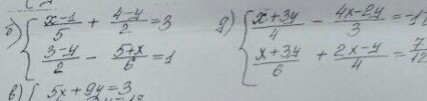 б) { (x-1)/5 + (4-y)/2 = 3
(3-y)/2 - (5+x)/6 = 1
д) { (x+3y)/4 - (4x-2y)/3 =
(x+3y)/6 + (2x-y)/4 = 7/12
в) { 5x+9y=3